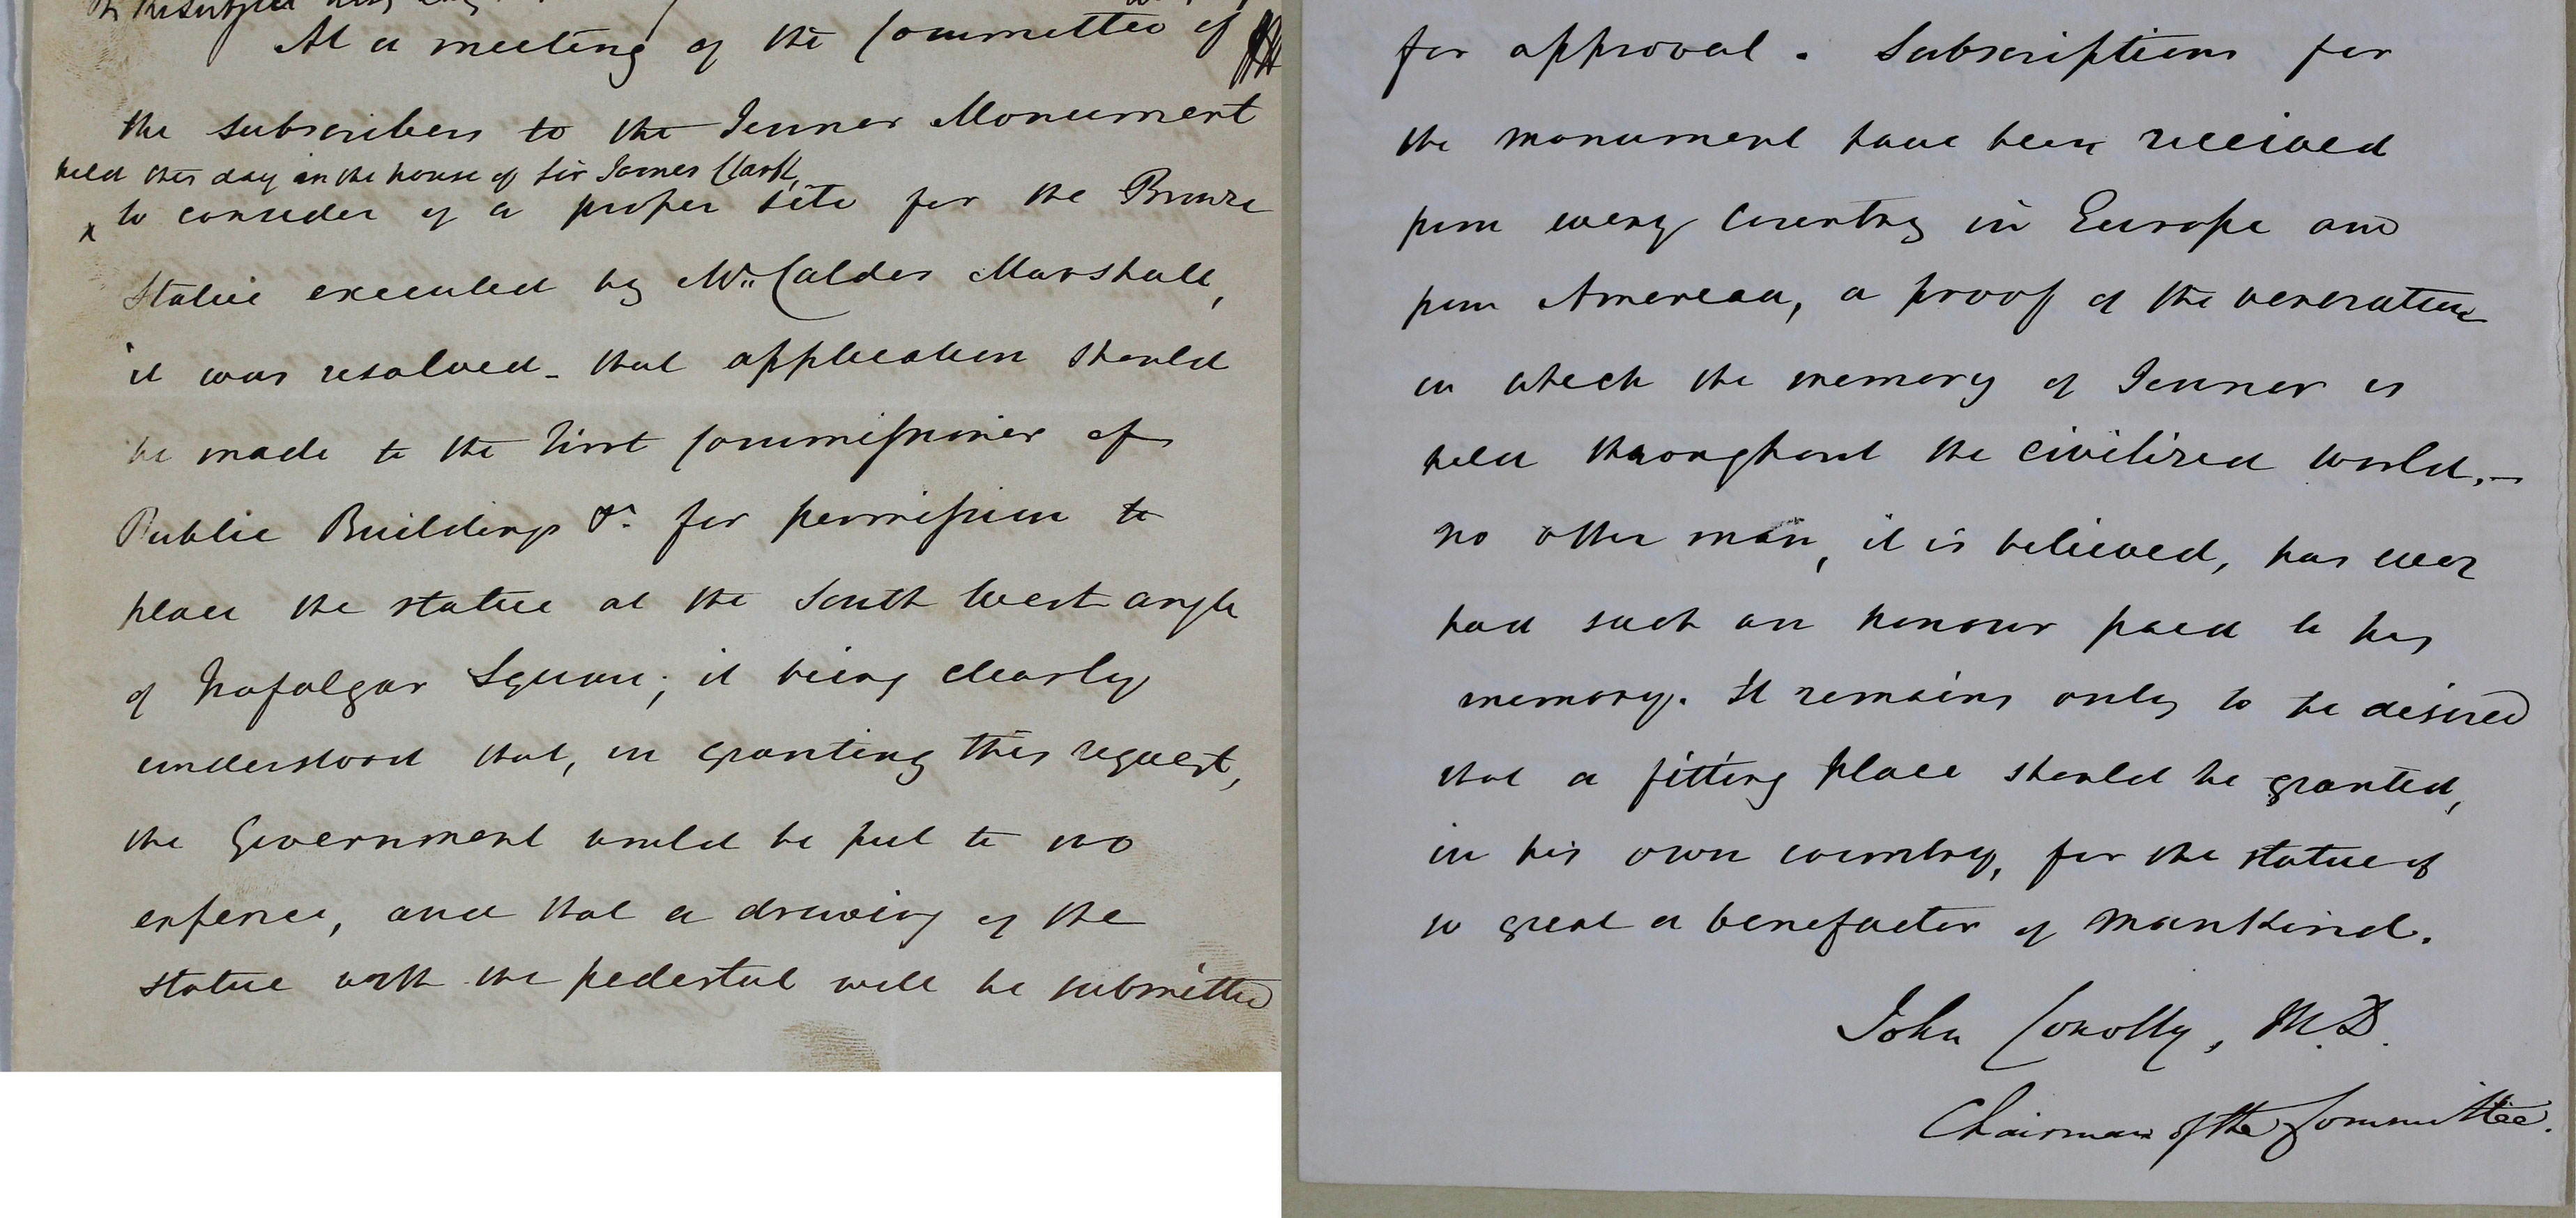 At a meeting of the Committee of
the subscribers to the Jenner Monument
held this day in the house of Sir James Clark,
x to consider of a proper site for the Bronze
Statue executed by Mr. Calder Marshall,
it was resolved - that application should
be made to the First Commissioner of
Public Buildings &c. for permission to
place the statue at the South West angle
of Trafalgar Square; it being clearly
understood that, in granting this request,
the Government would be put to no
expence, and that a drawing of the
statue with the pedestal will be submitted
for approval. Subscriptions for
the monument have been received
from every Country in Europe and
from America, a proof of the veneration
in which the memory of Jenner is
held throughout the civilized world. –
no other man, it is believed, has ever
had such an honour paid to his
memory. It remains only to be desired
that a fitting place should be granted,
in his own country, for the statue of
so great a benefactor of mankind.
John Conolly, M.D.
Chairman of the Committee.